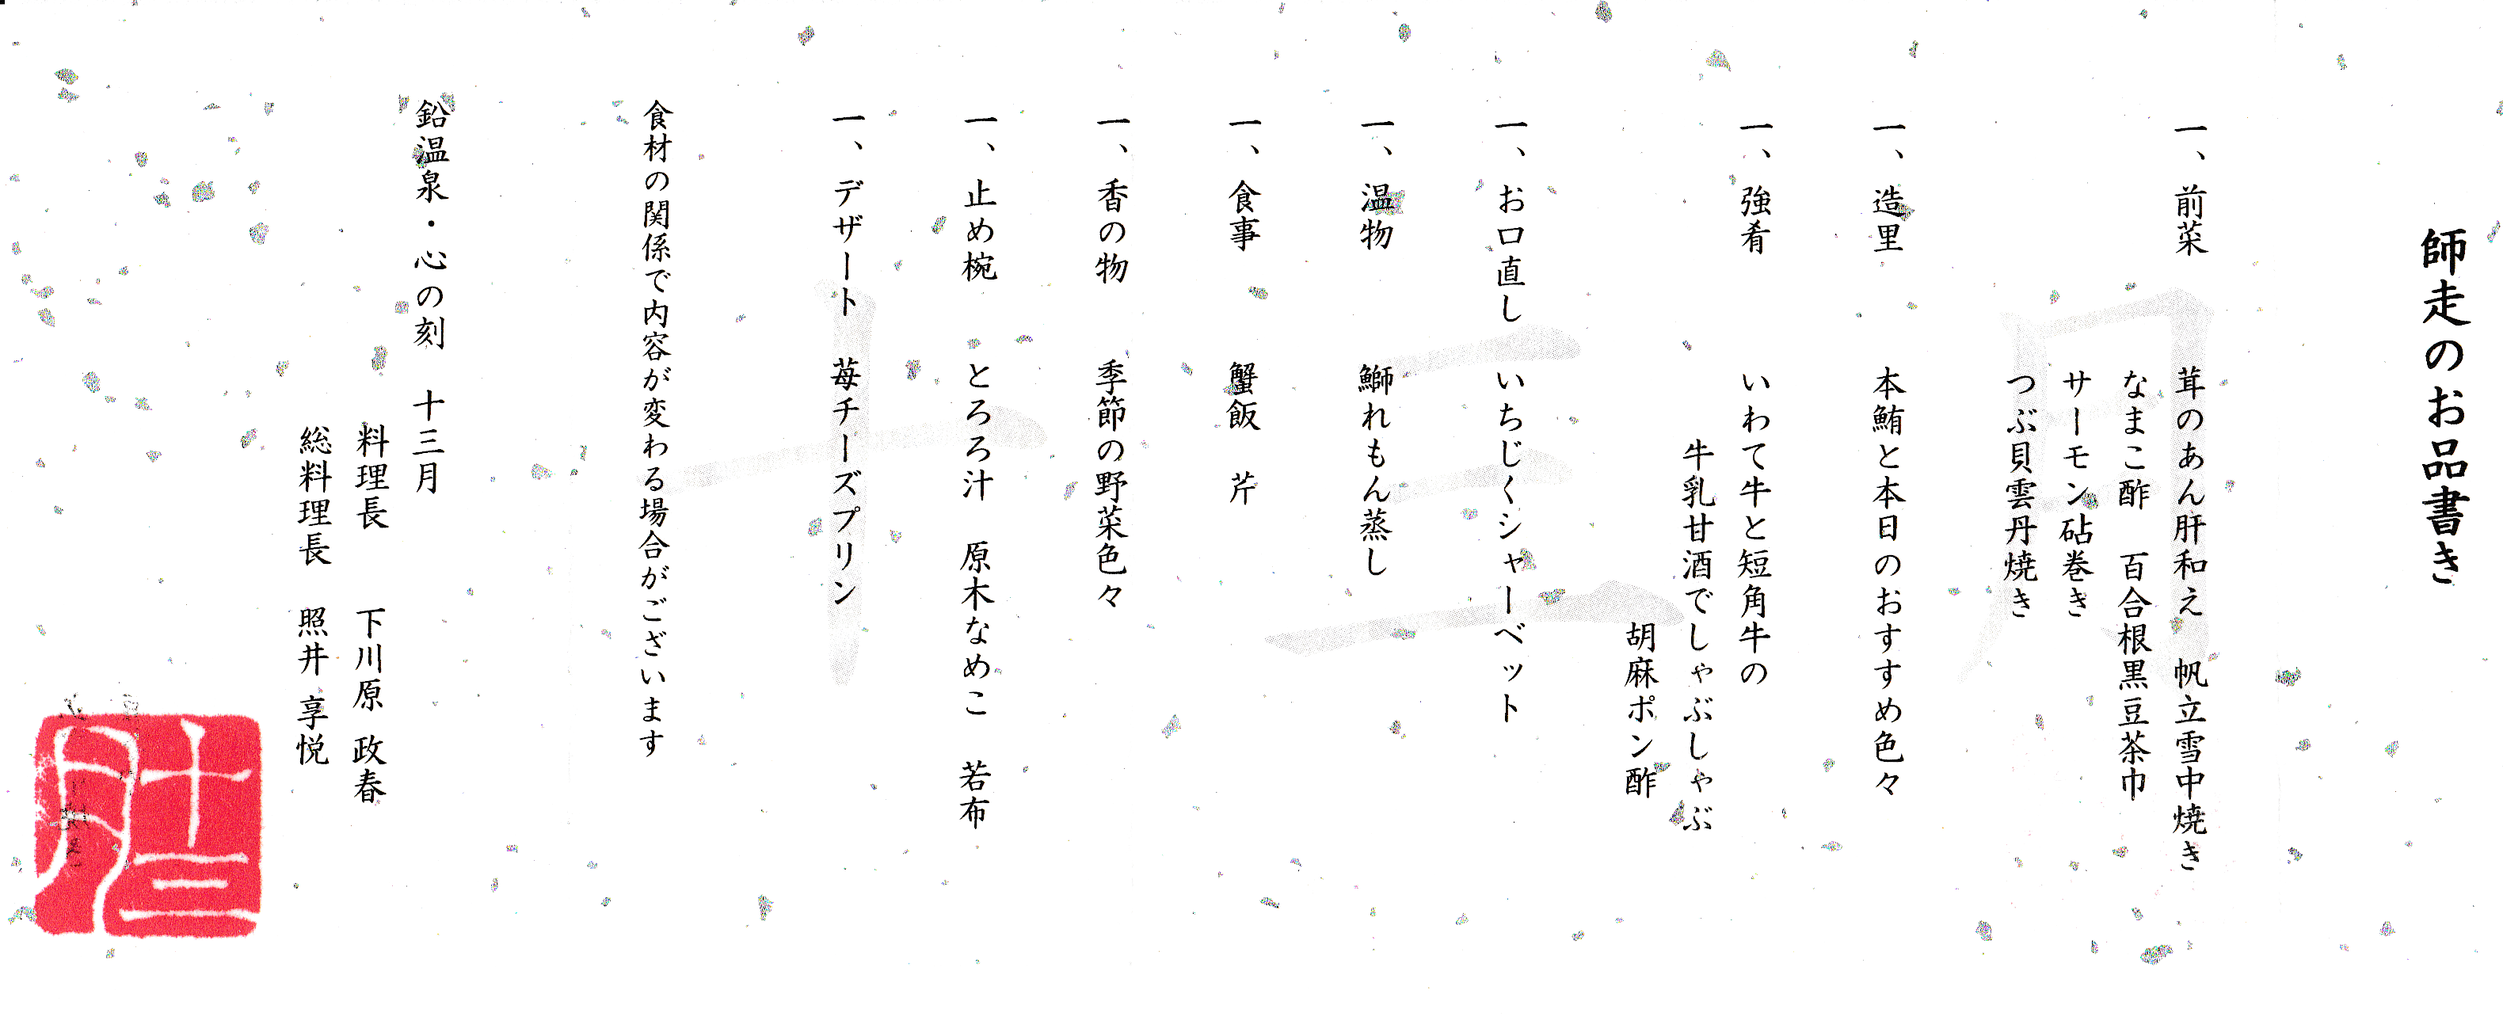 師走のお品書き
一、前菜 茸のあん肝和え 帆立雪中焼き
なまこ酢 百合根黒豆茶巾
サーモン砧巻き
つぶ貝雲丹焼き
一、造里 本鮪と本日のおすすめ色々
一、強肴 いわて牛と短角牛の
牛乳甘酒でしゃぶしゃぶ
胡麻ポン酢
一、お口直し いちじくシャーベット
一、温物 鰤れもん蒸し
一、食事 蟹飯 芹
一、香の物 季節の野菜色々
一、止め椀 とろろ汁 原木なめこ 若布
一、デザート 苺チーズプリン
食材の関係で内容が変わる場合がございます
鉛温泉・心の刻 十三月
料理長 下川原 政春
総料理長 照井 享悦
十三月